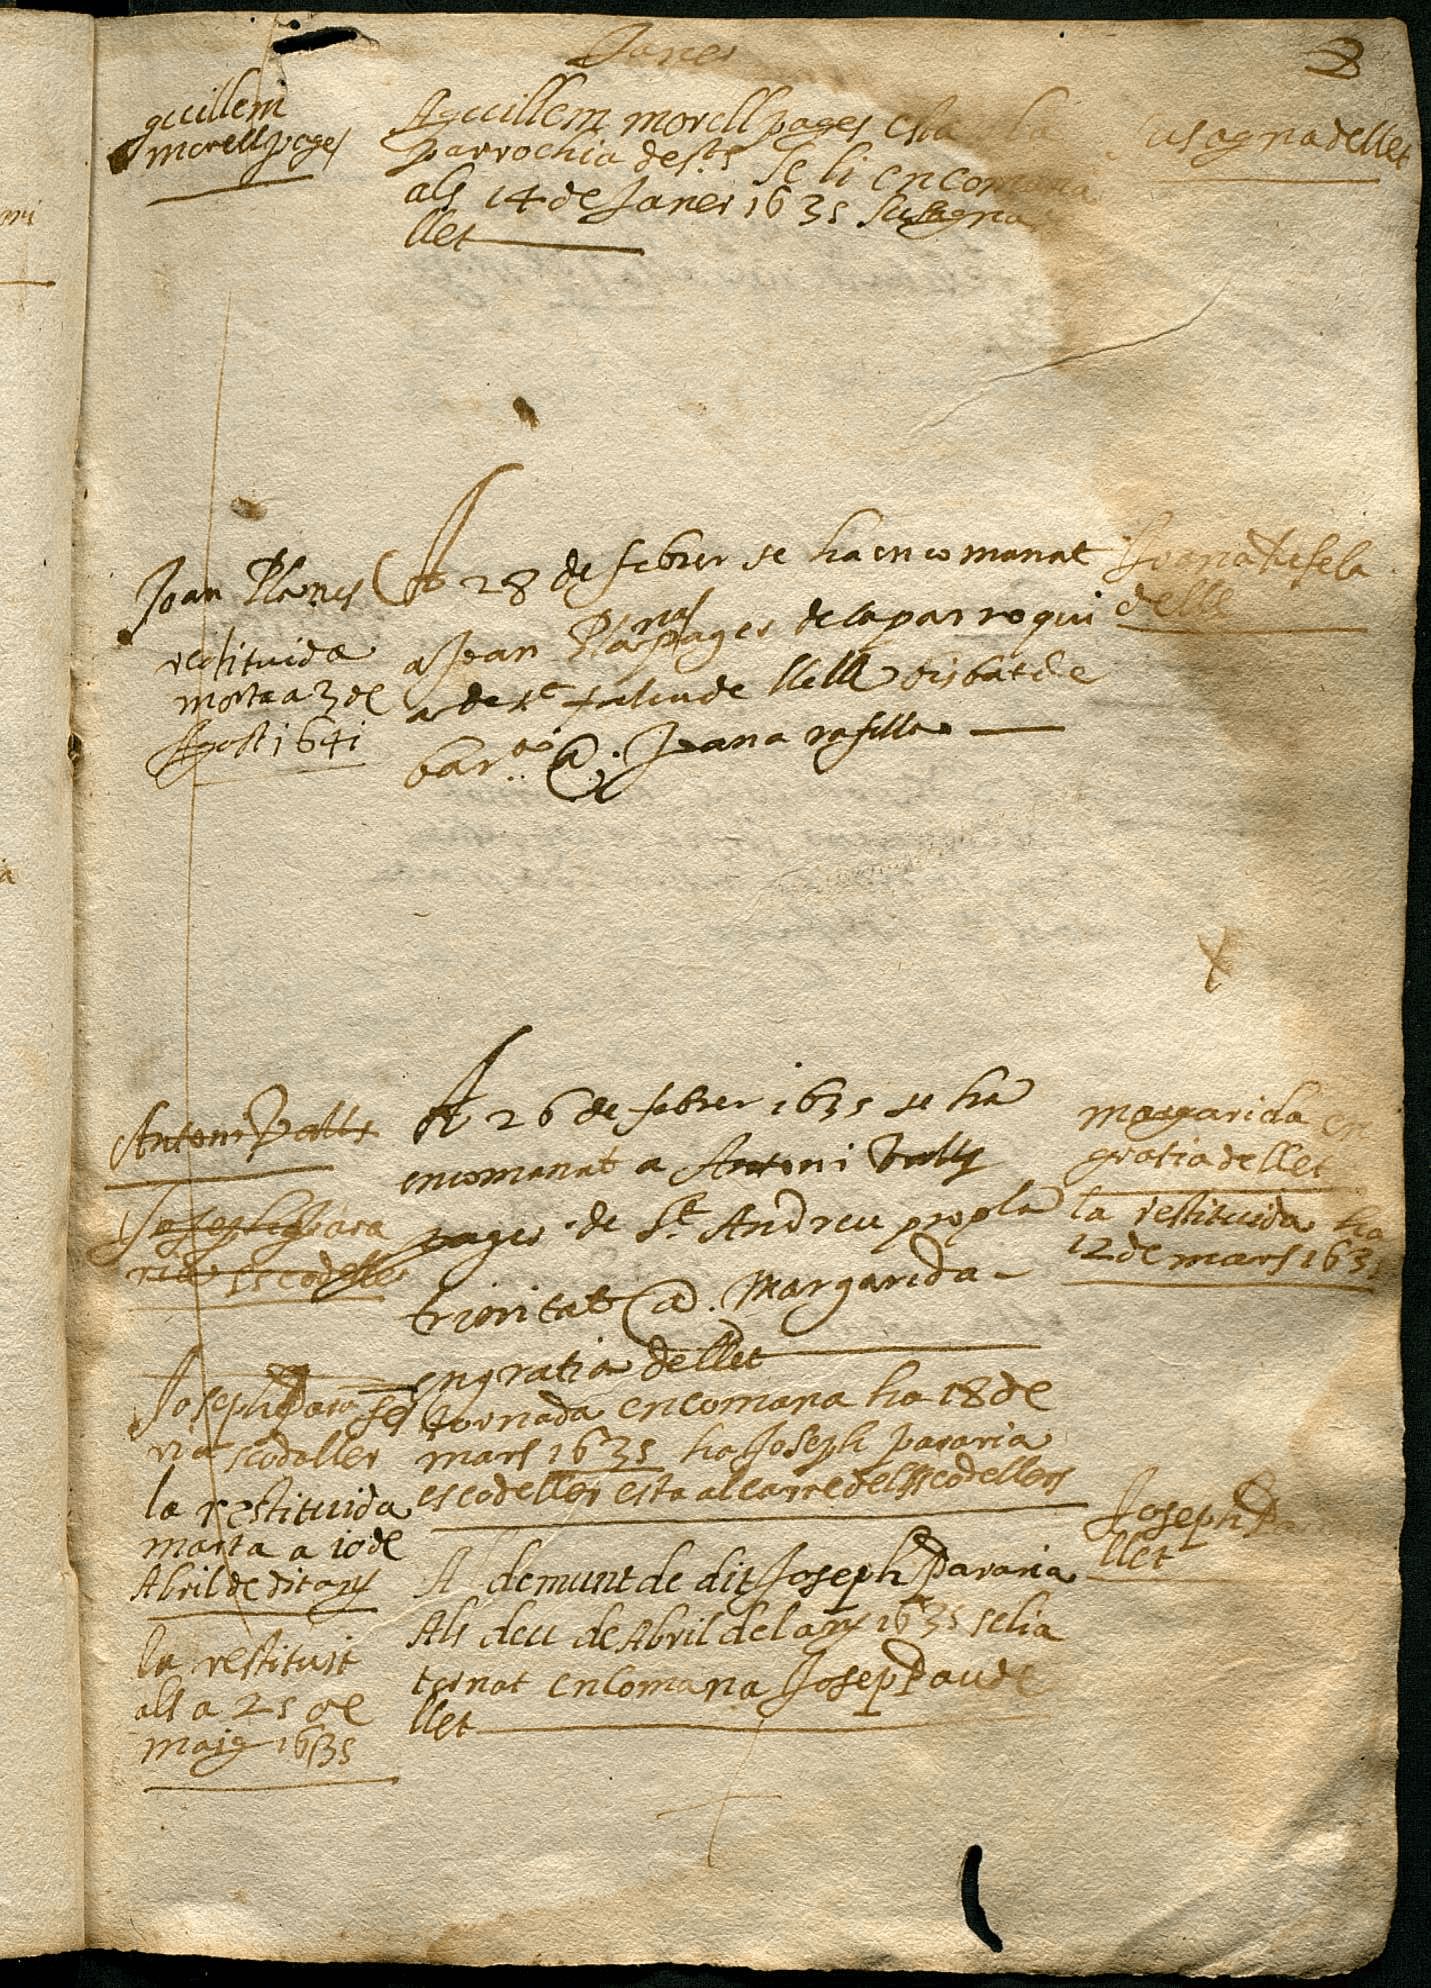 Janer
gucillem
morell pages
A guillem morell pages esta
parrochia de sts se li encomana
als 14 de Janer 1635 susagna
llet
susagna de llet
Joan Planes
restituida
morta a 3 de
Agost 1641
A 28 de febrer se ha encomanat
a Joan Planas pages de la parroqui
a de st de llella bisbat de
bar.na @. Joana rafella
Joana
de lle
Antoni Valls
Joseph Para
ria escodelle
A 26 de febrer 1635 se ha
encomanat a Antoni Valls
pages de St Andreu prop la
trinitat @. Margarida
engratia de llet
margarida en
gratia de llet
la restituida ha
12 de mars 1635
Joseph Para
ria scodaller
la restituida
morta a 10 de
Abril de dit any
la restituit
als a 25 de
maig 1635
ses tornada encomana ha 18 de
mars 1635 ha Joseph pararia
escodeller esta al carre dels scodellers
A demunt de dit Joseph Pararia
Als deu de Abril del any 1635 se li a
tornat encomana Josep Pau de
llet
Joseph Pau
llet